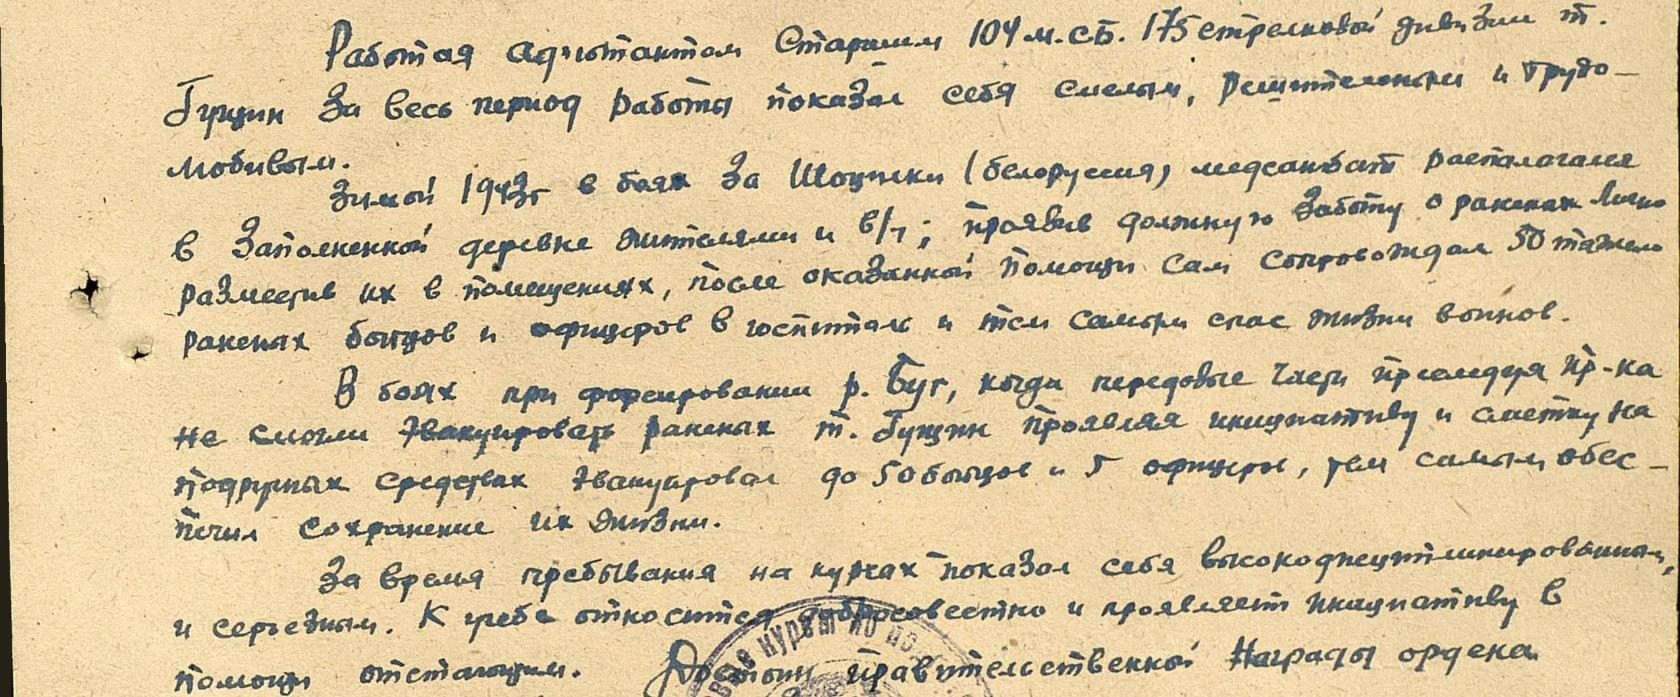 Работая адъютантом старшим 104 м.с.б. 175 стрелковой дивизии т.
Гущин за весь период работы показал себя смелым, решительным и трудо-
любивым.
Зимой 1943г в боях за (белоруссия) медсанбат располагался
в заполненной деревне жителями и в/ч; проявив должную заботу о раненых лично
разместив их в помещениях, после оказанной помощи сам сопровождал 50 тяжело
раненых бойцов и офицеров в госпиталь и тем самым спас жизни воинов.
В боях при форсировании р. Буг, когда передовые части преследуя пр-ка
не смогли эвакуировать раненых т. Гущин проявляя инициативу и сметку на
подручных средствах эвакуировал до 50 бойцов и 5 офицеров, тем самым обес-
печил сохранение их жизни.
За время пребывания на курсах показал себя высокодисциплинированным,
и серьезным. К учебе относится добросовестно и проявляет инициативу в
помощи отстающим. Достоин правительственной награды ордена
курсы по